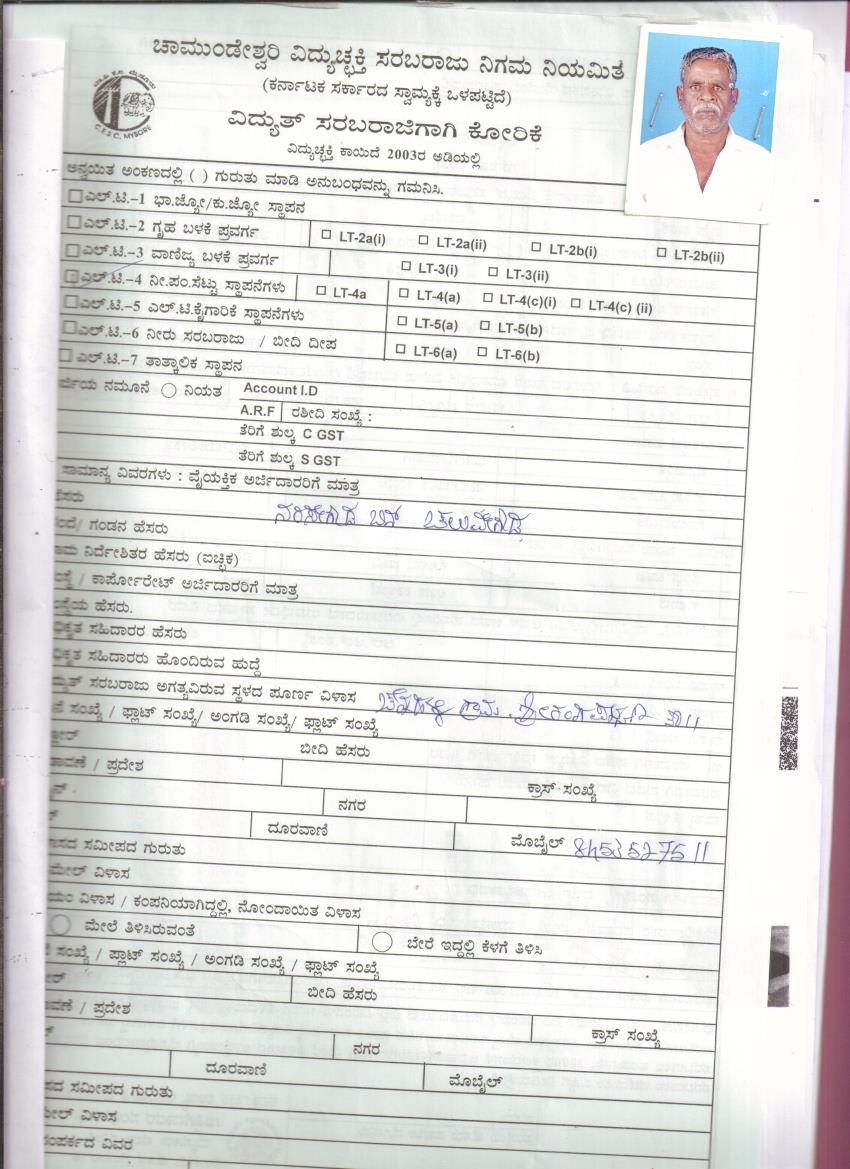 ಚಾಮುಂಡೇಶ್ವರಿ ವಿದ್ಯುಚ್ಛಕ್ತಿ ಸರಬರಾಜು ನಿಗಮ ನಿಯಮಿತ
(ಕರ್ನಾಟಕ ಸರ್ಕಾರದ ಸ್ವಾಮ್ಯಕ್ಕೆ ಒಳಪಟ್ಟಿದೆ)
C.E.S.C, MYSORE
ವಿದ್ಯುತ್ ಸರಬರಾಜಿಗಾಗಿ ಕೋರಿಕೆ
ವಿದ್ಯುಚ್ಛಕ್ತಿ ಕಾಯಿದೆ 2003ರ ಅಡಿಯಲ್ಲಿ
ಅನ್ವಯಿತ ಅಂಕಣದಲ್ಲಿ ( ) ಗುರುತು ಮಾಡಿ ಅನುಬಂಧವನ್ನು ಗಮನಿಸಿ.
ಎಲ್.ಟಿ.–1 ಭಾ.ಜ್ಯೋ/ಕು.ಜ್ಯೋ ಸ್ಥಾಪನ
ಎಲ್.ಟಿ.–2 ಗೃಹ ಬಳಕೆ ಪ್ರವರ್ಗ LT-2a(i) LT-2a(ii) LT-2b(i) LT-2b(ii)
ಎಲ್.ಟಿ.–3 ವಾಣಿಜ್ಯ ಬಳಕೆ ಪ್ರವರ್ಗ LT-3(i) LT-3(ii)
ಎಲ್.ಟಿ.–4 ನೀ.ಪಂ.ಸೆಟ್ಟು ಸ್ಥಾಪನೆಗಳು LT-4a LT-4(a) LT-4(c)(i) LT-4(c) (ii)
ಎಲ್.ಟಿ.–5 ಎಲ್.ಟಿ.ಕೈಗಾರಿಕೆ ಸ್ಥಾಪನೆಗಳು LT-5(a) LT-5(b)
ಎಲ್.ಟಿ.–6 ನೀರು ಸರಬರಾಜು / ಬೀದಿ ದೀಪ LT-6(a) LT-6(b)
ಎಲ್.ಟಿ.–7 ತಾತ್ಕಾಲಿಕ ಸ್ಥಾಪನ
ರ್ಜಿಯ ನಮೂನೆ ನಿಯತ Account I.D
A.R.F ರಶೀದಿ ಸಂಖ್ಯೆ :
ತೆರಿಗೆ ಶುಲ್ಕ C GST
ತೆರಿಗೆ ಶುಲ್ಕ S GST
ಸಾಮಾನ್ಯ ವಿವರಗಳು : ವೈಯಕ್ತಿಕ ಅರ್ಜಿದಾರರಿಗೆ ಮಾತ್ರ
ಹೆಸರು ನರಸೇಗೌಡ ಬಿನ್ ಚಲುವೇಗೌಡ
ಂದೆ/ ಗಂಡನ ಹೆಸರು
ಾಮ ನಿರ್ದೇಶಿತರ ಹೆಸರು (ಐಚ್ಛಿಕ)
ಂಸ್ಥೆ / ಕಾರ್ಪೋರೇಟ್ ಅರ್ಜಿದಾರರಿಗೆ ಮಾತ್ರ
ಂಸ್ಥೆಯ ಹೆಸರು.
ಧಿಕೃತ ಸಹಿದಾರರ ಹೆಸರು
ಧಿಕೃತ ಸಹಿದಾರರು ಹೊಂದಿರುವ ಹುದ್ದೆ
ದ್ಯುತ್ ಸರಬರಾಜು ಅಗತ್ಯವಿರುವ ಸ್ಥಳದ ಪೂರ್ಣ ವಿಳಾಸ ಗ್ರಾಮ. ಶ್ರೀರಂಗಪಟ್ಟಣ ತಾ||
ನೆ ಸಂಖ್ಯೆ / ಫ್ಲಾಟ್ ಸಂಖ್ಯೆ/ ಅಂಗಡಿ ಸಂಖ್ಯೆ/ ಫ್ಲಾಟ್ ಸಂಖ್ಯೆ
್ಲೋರ್ ಬೀದಿ ಹೆಸರು
ಾವಣೆ / ಪ್ರದೇಶ ಕ್ರಾಸ್ ಸಂಖ್ಯೆ
ನಗರ
ದೂರವಾಣಿ ಮೊಬೈಲ್
ಾಸದ ಸಮೀಪದ ಗುರುತು
ಮೇಲ್ ವಿಳಾಸ
ಯಂ ವಿಳಾಸ / ಕಂಪನಿಯಾಗಿದ್ದಲ್ಲಿ, ನೋಂದಾಯಿತ ವಿಳಾಸ
ಮೇಲೆ ತಿಳಿಸಿರುವಂತೆ ಬೇರೆ ಇದ್ದಲ್ಲಿ ಕೆಳಗೆ ತಿಳಿಸಿ
ೆ ಸಂಖ್ಯೆ / ಪ್ಲಾಟ್ ಸಂಖ್ಯೆ / ಅಂಗಡಿ ಸಂಖ್ಯೆ / ಫ್ಲಾಟ್ ಸಂಖ್ಯೆ
ೋರ್ ಬೀದಿ ಹೆಸರು
ಾವಣೆ / ಪ್ರದೇಶ ಕ್ರಾಸ್ ಸಂಖ್ಯೆ
ನಗರ
ದೂರವಾಣಿ ಮೊಬೈಲ್
ಸದ ಸಮೀಪದ ಗುರುತು
ಮೇಲ್ ವಿಳಾಸ
ಸಂಪರ್ಕದ ವಿವರ